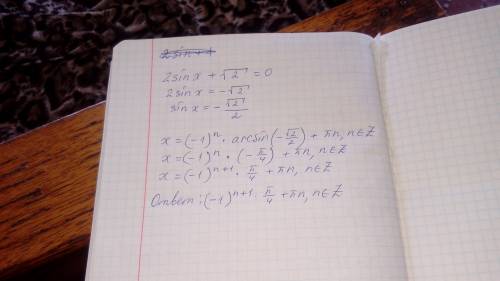 2sin x + √2 = 0
2sin x = -√2
sin x = -√2/2
x = (-1)ⁿ · arcsin(-√2/2) + πn, n∈Z
x = (-1)ⁿ · (-π/4) + πn, n∈Z
x = (-1)ⁿ⁺¹ · π/4 + πn, n∈Z
Ответ: (-1)ⁿ⁺¹ · π/4 + πn, n∈Z